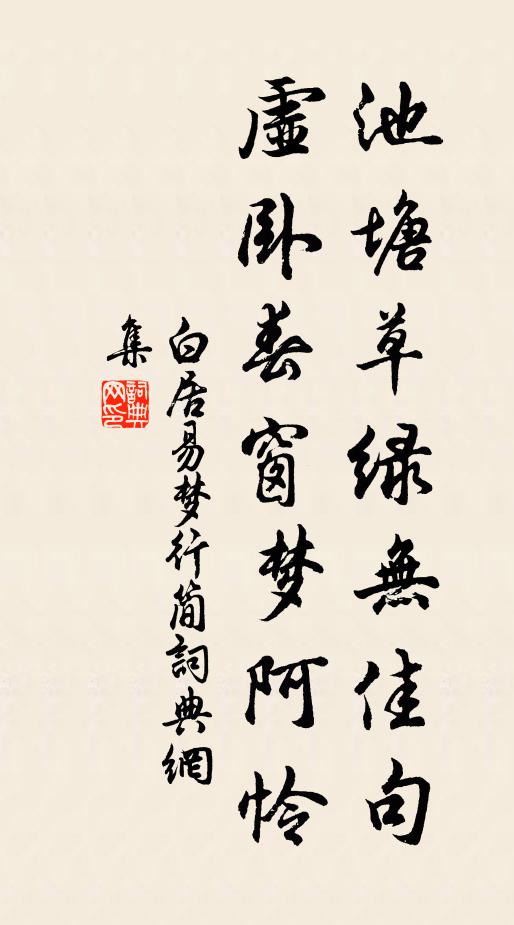 池塘草绿無佳句
虛卧春窗梦阿怜
白居易梦行简詞典網
集
詞典网印